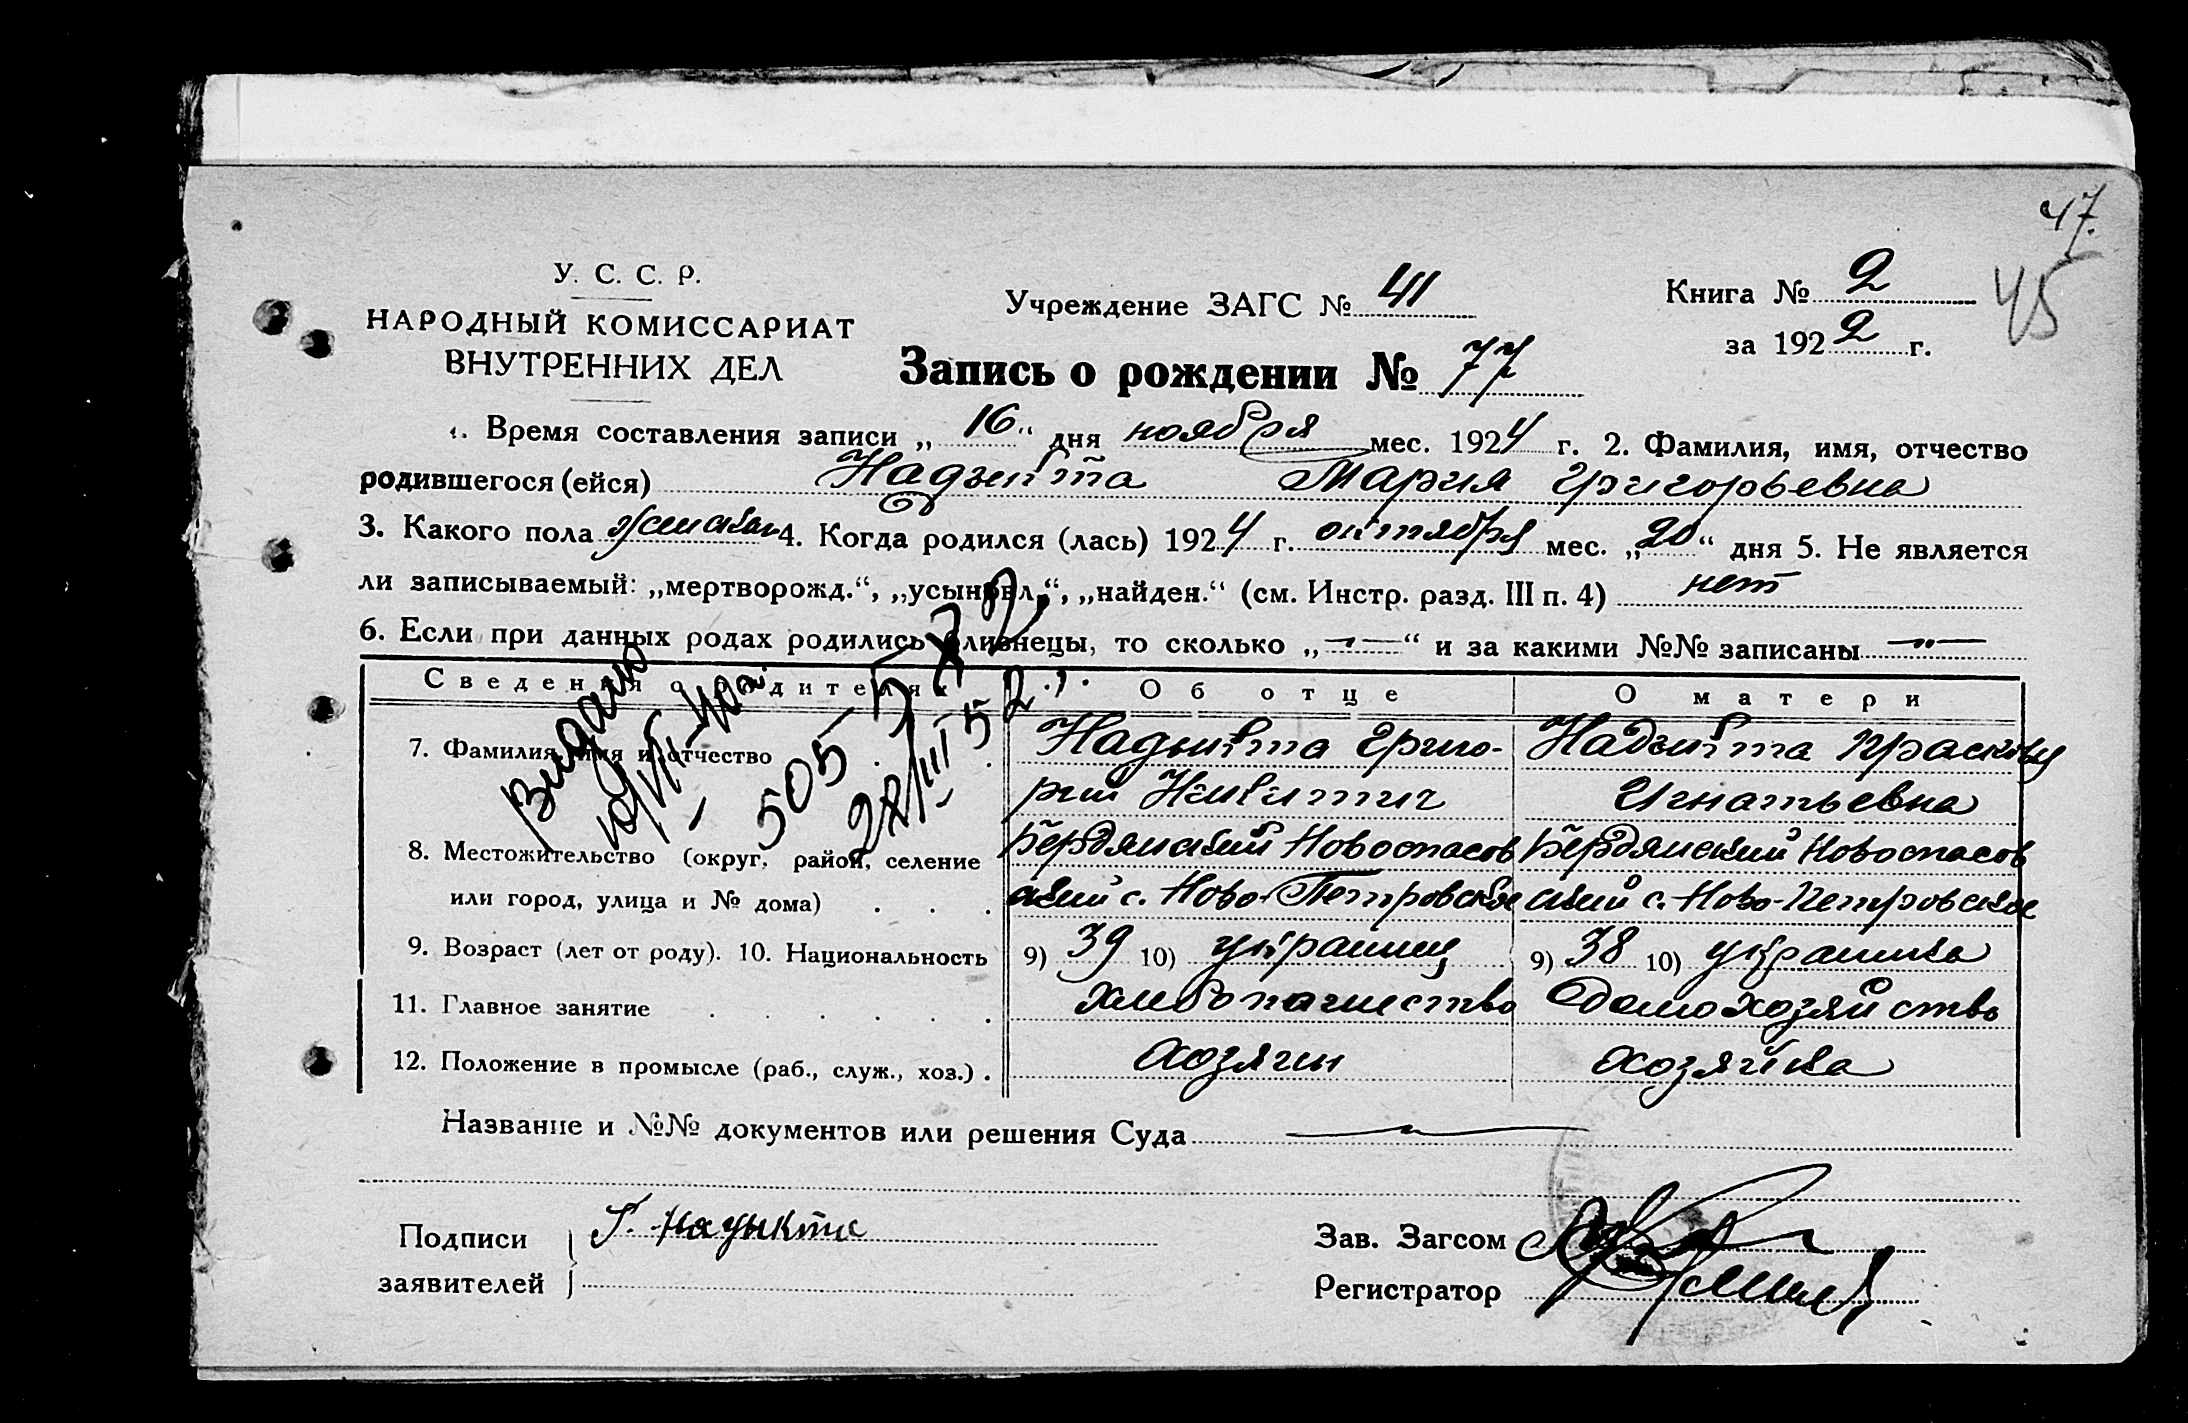 47.
45
У. С. С. Р.
НАРОДНЫЙ КОМИССАРИАТ
ВНУТРЕННИХ ДЕЛ
Учреждение ЗАГС № 41
Книга № 2
за 1922 г.
Запись о рождении № 77
1. Время составления записи „16“ дня ноября мес. 1924 г. 2. Фамилия, имя, отчество
родившегося (ейся) Надыкта Мария Григорьевна
3. Какого пола 4. Когда родился (лась) 1924 г. октября мес. „20“ дня 5. Не является
ли записываемый: „мертворожд.“, „усыновл.“, „найден.“ (см. Инстр. разд. III п. 4) нет
6. Если при данных родах родились близнецы, то сколько „—“ и за какими №№ записаны —„—
Сведения о родителях
Об отце
О матери
7. Фамилия имя и отчество
Надыкта Григо-
рий Никитич
Надыкта Прасковья
Игнатьевна
8. Местожительство (округ, район, селение
или город, улица и № дома)
Бердянский Новоспасов
ский с. Ново-Петровское
Бердянский Новоспасов
ский с. Ново-Петровское
9. Возраст (лет от роду). 10. Национальность
9) 39 10) украинец
9) 38 10) украинка
11. Главное занятие
хлебопашество
Домохозяйство
12. Положение в промысле (раб., служ., хоз.)
хозяин
хозяйка
Видано
505
Название и №№ документов или решения Суда —
Подписи
заявителей
Г. Надыкта
Зав. Загсом
Регистратор